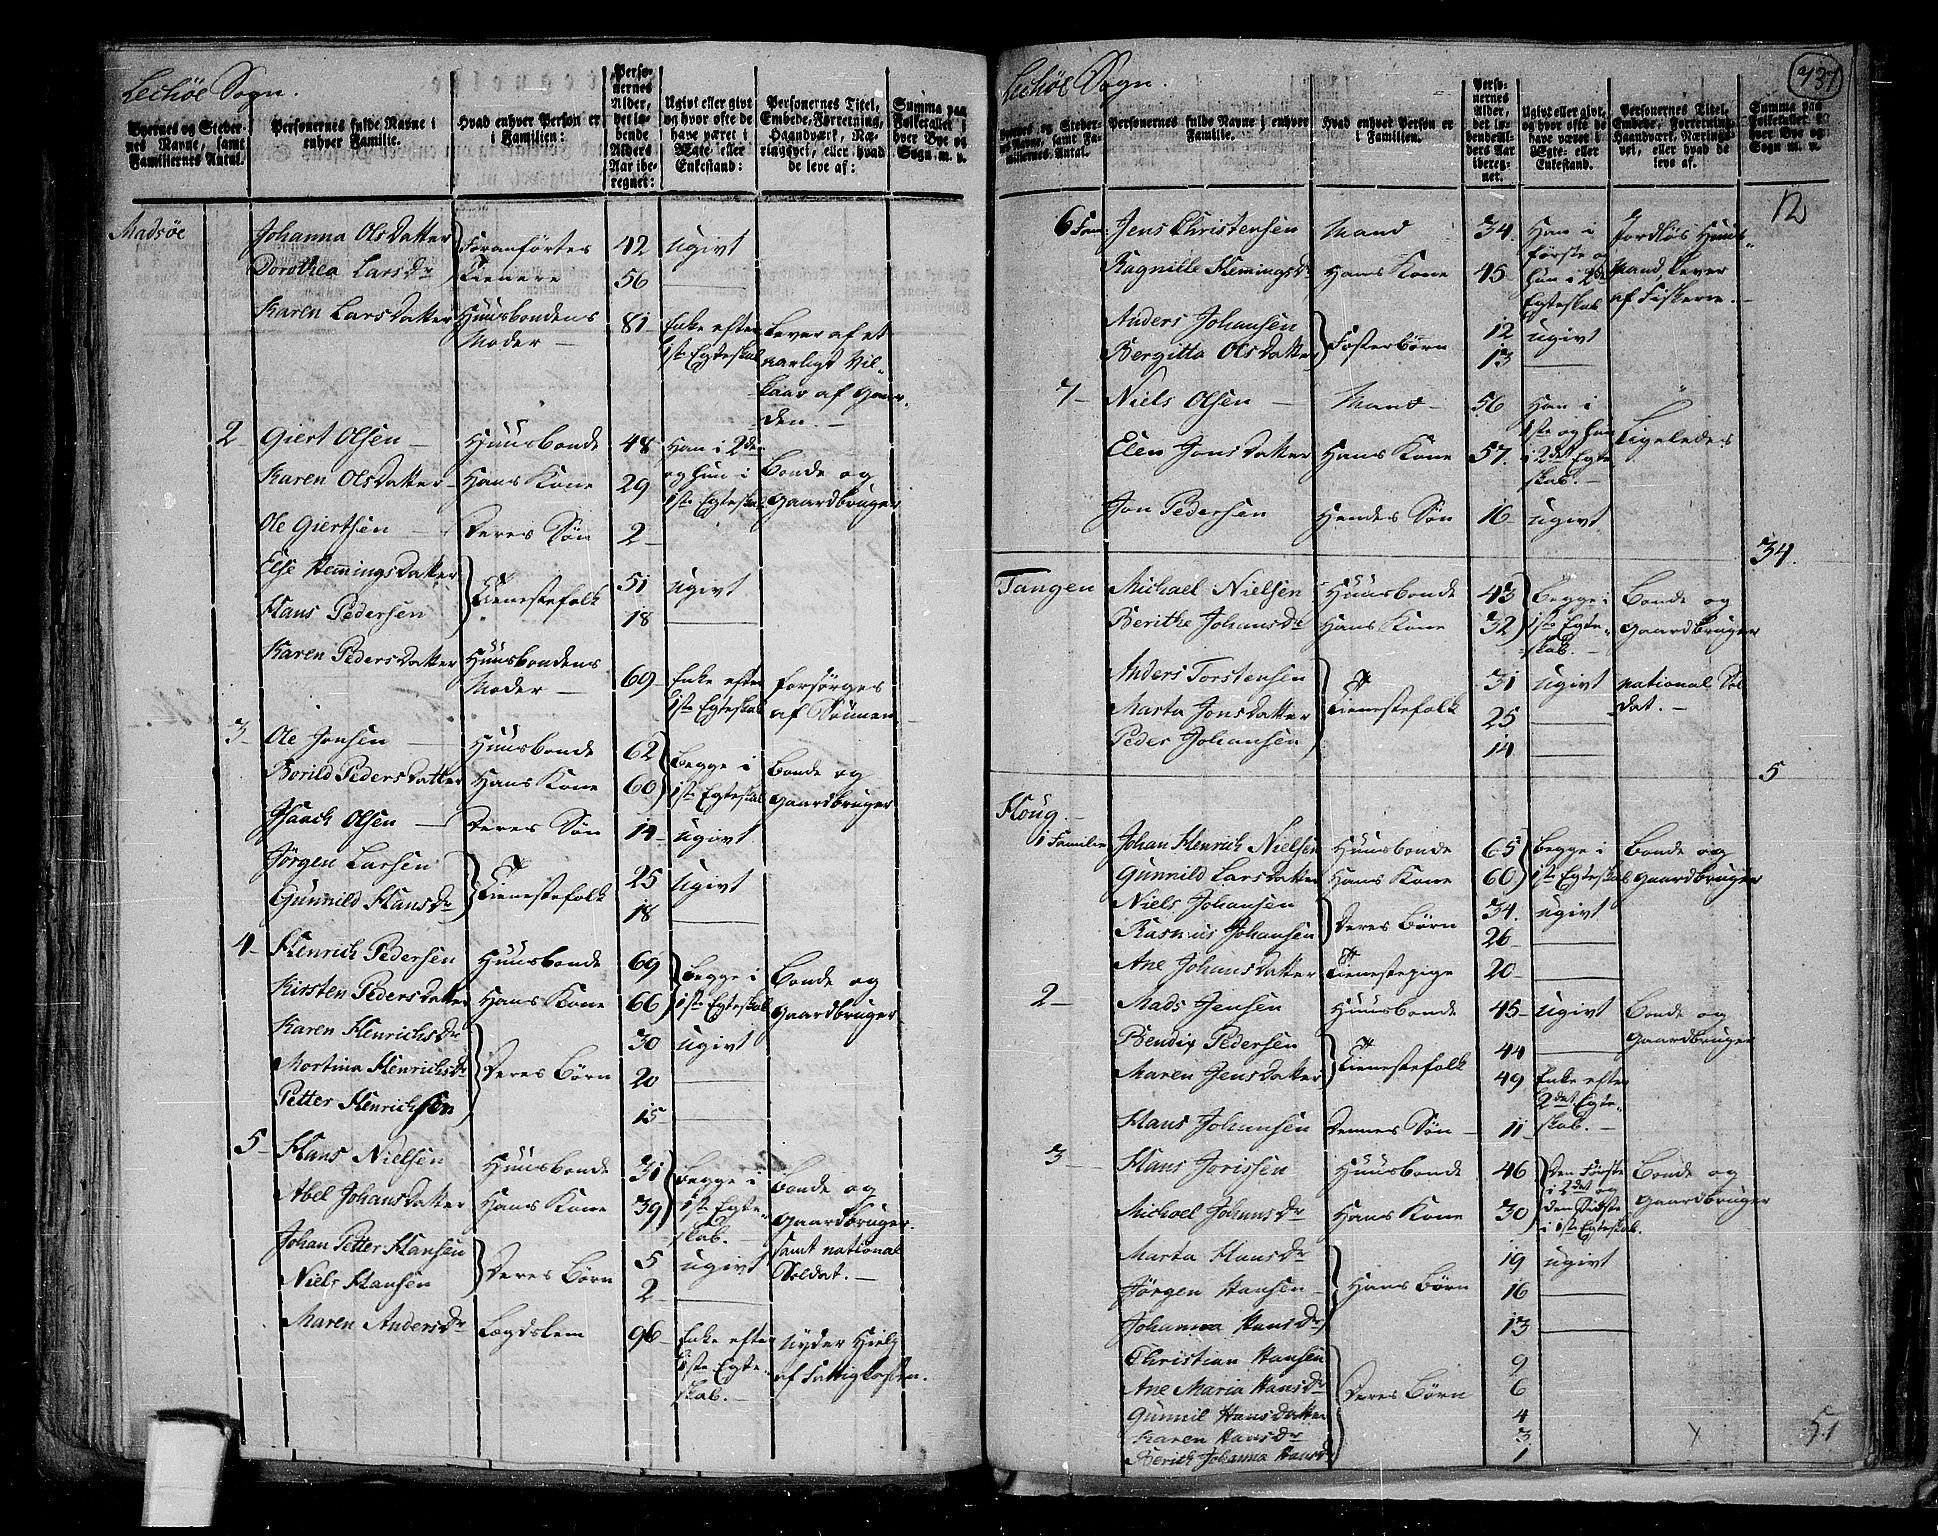 Lechöe Sogn.
Byernes og Steder-
nes Navne, samt
Familiernes Antal.
Personernes fulde Navne i
enhver Familie.
Hvad enhver Person er
i Familien:
Perso-
nernes
Alder,
det lø-
bende
Alders
Aar ibe-
regnet:
Ugivt eller givt
og hvor ofte de
have været i
Ægte- eller
Enkestand:
Personernes Titel,
Embede, Forretning,
Haandværk, Næ-
ringsvei, eller hvad
de leve af:
Summa paa
Folketallet i
hver Bye og
Sogn m. v.
Madsöe
Johanna Olsdatter } Foranförtes 42 ugivt
Dorothea Larsdr Tienere 56 —
Karen Larsdatter Huusbondens 81 Enke efter Lever af et
Moder — 1ste Egteskab aarligt Vil-
kaar af Gaar-
den. —
2 Giert Olsen — Huusbonde 48 Han i 2det
Karen Olsdatter Hans Kone 29 og hun i Bonde og
1ste Egteskab Gaardbruger
Ole Giertsen — Deres Søn 2 —
Else Hemmingsdatter } Tienestefolk 51 ugivt
Hans Pedersen 18 —
Karen Pedersdatter Huusbondens
Moder — 69 Enke efter forsörges
1ste Egteskab af Sönnen —
3 Ole Jonsen — Huusbonde 62 } begge i Bonde og
Borild Pedersdatter Hans Kone 60 1ste Egteskab Gaardbruger
Isaach Olsen — Deres Søn 14 ugivt
Jörgen Larsen } Tienestefolk 25 ugivt
Gunnild Hansdr 18 —
4 Henrich Pedersen Huusbonde 69 } begge i Bonde og
Kirsten Pedersdatter Hans Kone 66 1ste Egteskab Gaardbruger
Karen Henrichsdr } Deres Börn 30 ugivt
Mortina Henrichsdr 20 —
Petter Henrichsen 15 —
5 Hans Nielsen Huusbonde 31 } begge i Bonde og
Abel Johansdatter Hans Kone 39 1ste Egte- Gaardbruger
skab. — samt national
Johan Petter Hansen } Deres Börn 5 ugivt Soldat. —
Niels Hansen 2 —
Maren Andersdr Lægdslem 96 Enke efter nyder Hielp
1ste Egte- af Fattigkassen.
skab. —
737
Lechöe Sogn.
Byernes og Steder-
nes Navne, samt Fa-
miliernes Antal.
Personernes fulde Navne i enhver
Familie.
Hvad enhver Person er
i Familien.
Perso-
nernes
Alder,
det lø-
bende Al-
ders Aar
iberegnet.
Ugivt eller givt,
og hvor ofte de
have været i
Ægte- eller
Enkestand.
Personernes Titel,
Embede, Forretning,
Haandværk, Nærings-
vei, eller hvad de
leve af.
Summa paa
Folketallet i
hver Bye og
Sogn m. v.
12
6 Fam: Jens Christensen Mand 34 Han i Jordlös Huus-
förste og mand lever
Ragnille Hemmingsdr Hans Kone 45 hun i 2det af Fiskerie. —
Egteskab
Anders Johansen } Fosterbörn 12 ugivt
Bergitta Olsdatter 13 —
7 Niels Olsen — Mand — 56 Han i
1ste og hun Ligeledes
Elen Jonsdatter Hans Kone 57 i 2det Egte-
skab. —
Jon Pedersen Hendes Søn 16 ugivt
34.
Tangen Michael Nielsen Huusbonde 43 } begge i Bonde og
Berithe Johansdr Hans Kone 32 1ste Egte- Gaardbruger
skab. —
Anders Torstensen } Tienestefolk 31 ugivt national Sol
Marta Jonsdatter 25 — dat. —
Peder Johansen 14 —
5
Houg. —
1 Familie Johan Henrich Nielsen Huusbonde 65 } begge i Bonde og
Gunnild Larsdatter Hans Kone 60 1ste Egteskab Gaardbruger
Niels Johansen } Deres Börn 34 ugivt
Rasmus Johansen 26 —
Ane Johansdatter Tienestepige 20 —
2 — Mads Jensen Huusbonde 45 ugivt Bonde og
Gaardbruger
Bendix Pedersen } Tienestefolk 44 —
Maren Jensdatter 49 Enke efter
2det Egte-
Hans Johansen Dennes Søn — 11 skab. —
3 — Hans Jorissen Huusbonde 46 } Den Förste Bonde og
i 2det og Gaardbruger
Michael Johansdr Hans Kone 30 den Sidste
i 1ste Egteskab.
Marta Hansdr } Hans Börn 19 ugivt
Jörgen Hansen — 16 —
Johanna Hansdr 13 —
Christian Hansen } Deres Börn 9
Ane Maria Hansdr 6
Gunnil Hansdatter 4
Karen Hansdr 3
Berith Johanna Hansdr 1
51